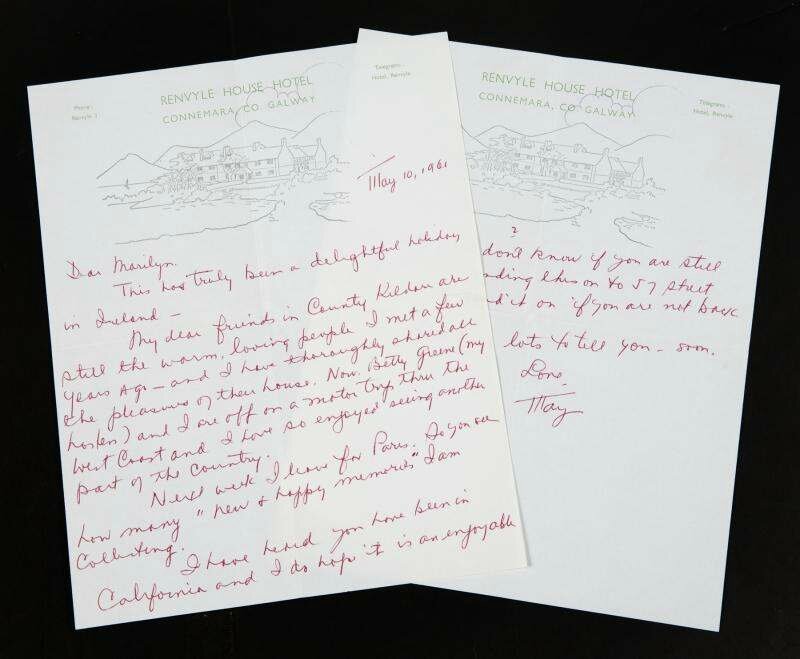 Phone:
Renvyle 3
RENVYLE HOUSE HOTEL
CONNEMARA, CO GALWAY
Telegrams -
Hotel, Renvyle
May 10, 1961
Dear Marilyn.
This has truly been a delightful holiday
in Ireland -
My dear friends in County Kildare are
still the warm, loving people I met a few
years ago - and I have thoroughly shared all
the pleasures of their house. Now Betty Greene (my
hostess) and I are off on a motor trip thru the
West Coast and I have so enjoyed seeing another
part of the country.
Next week I leave for Paris. So you see
how many "new & happy memories" I am
collecting.
I have heard you have been in
California and I do hope it is an enjoyable
RENVYLE HOUSE HOTEL
CONNEMARA, CO GALWAY
Telegrams -
Hotel, Renvyle
2
don't know if you are still
nding this on to 57 street
d it on if you are not back
lots to tell you - soon.
Love,
May